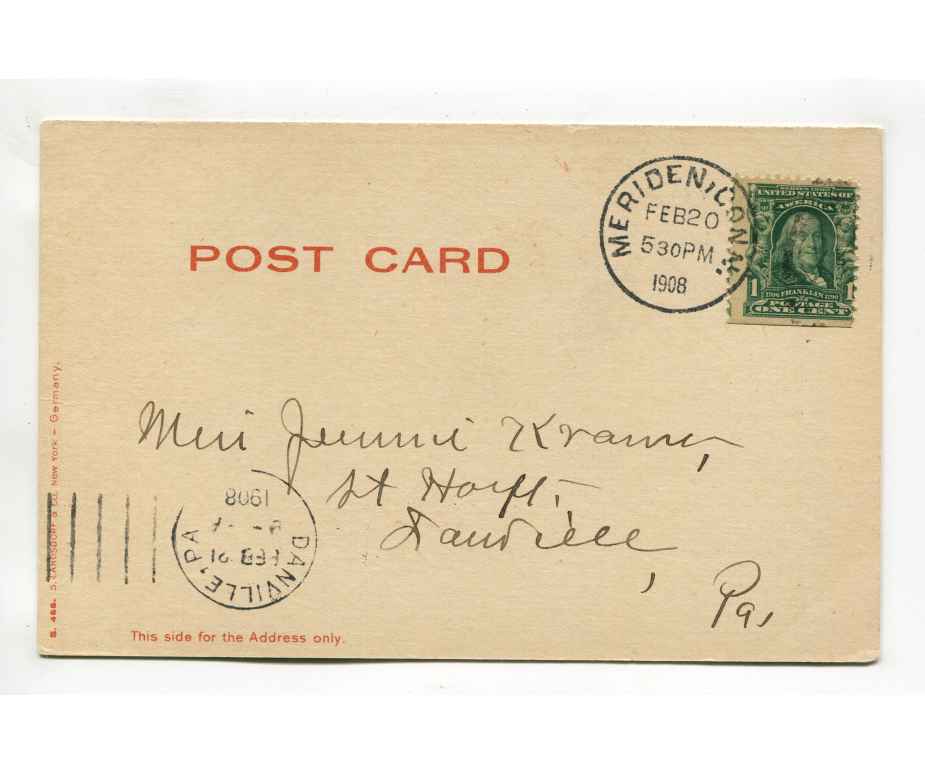 POST CARD
MERIDEN, CONN.
FEB 20
5 30 PM
1908
SERIES 1902
UNITED STATES OF
AMERICA
1706 FRANKLIN 1790
1 1
POSTAGE
ONE CENT
Miss Jennie Kramer,
St Hosp't,
Danville
,
Pa,
DANVILLE, PA
FEB 21
1908
S. 466. S. LANGSDORF & CO. New York - Germany.
This side for the Address only.